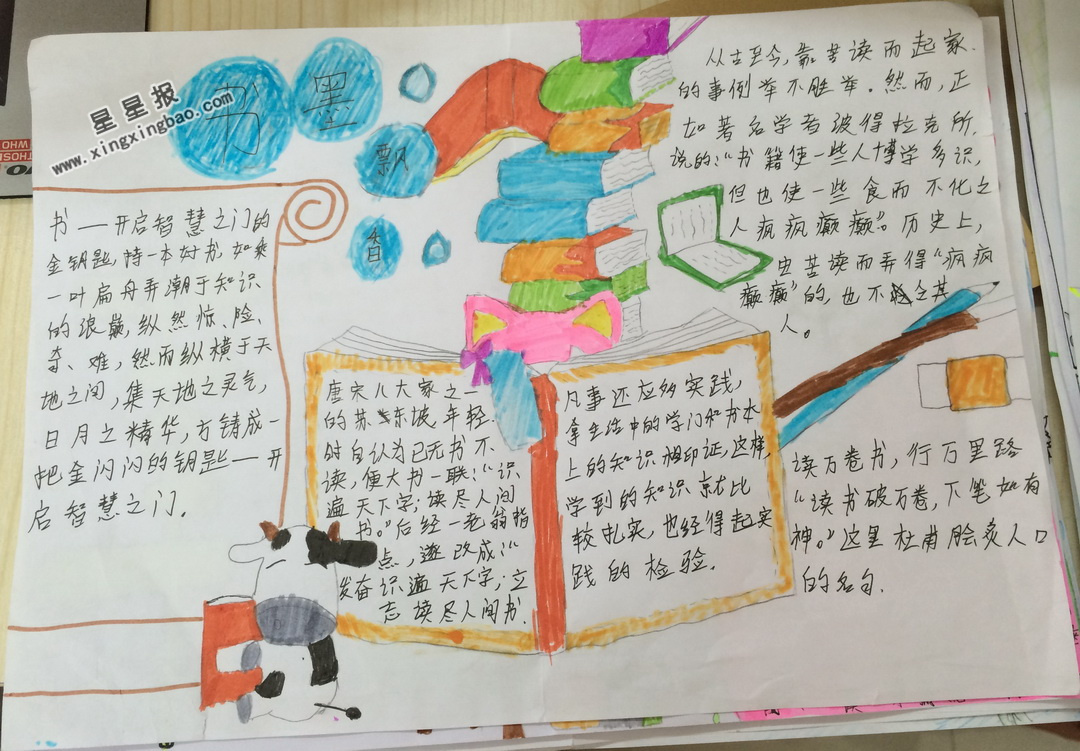 书
墨
飘
香
星星报
www.xingxingbao.com
书——开启智慧之门的
金钥匙，恃一本好书，如乘
一叶扁舟弄潮于知识
的浪巅，纵然惊、险、
奇、难，然而纵横于天
地之间，集天地之灵气，
日月之精华，方铸成一
把金闪闪的钥匙——开
启智慧之门。
唐宋八大家之一
的苏东坡，年轻
时自认为已无书不
读，便大书一联：“识
遍天下字；读尽人间
书。”后经一老翁指
点，逐改成：“
发奋识遍天下字；立
志读尽人间书.
凡事还应多实践，
拿生活中的学门和书本
上的知识相印证，这样，
学到的知识就比
较扎实，也经得起实
践的检验.
从古至今，靠苦读而起家
的事例举不胜举。然而，正
如著名学者波得拉克所
说的：“书籍使一些人博学多识，
但也使一些食而不化之
人疯疯癫癫”。历史上，
因苦读而弄得“疯疯
癫癫”的，也不乏其
人。
读万卷书，行万里路
“读书破万卷，下笔如有
神。”这里杜甫脍炙人口
的名句.